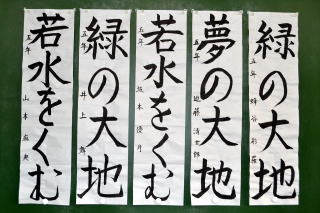 緑の大地
五年 蜂谷彩羅
夢の大地
五年 近藤清士郎
若水をくむ
五年 坂本優月
緑の大地
五年 井上
若水をくむ
五年 山本